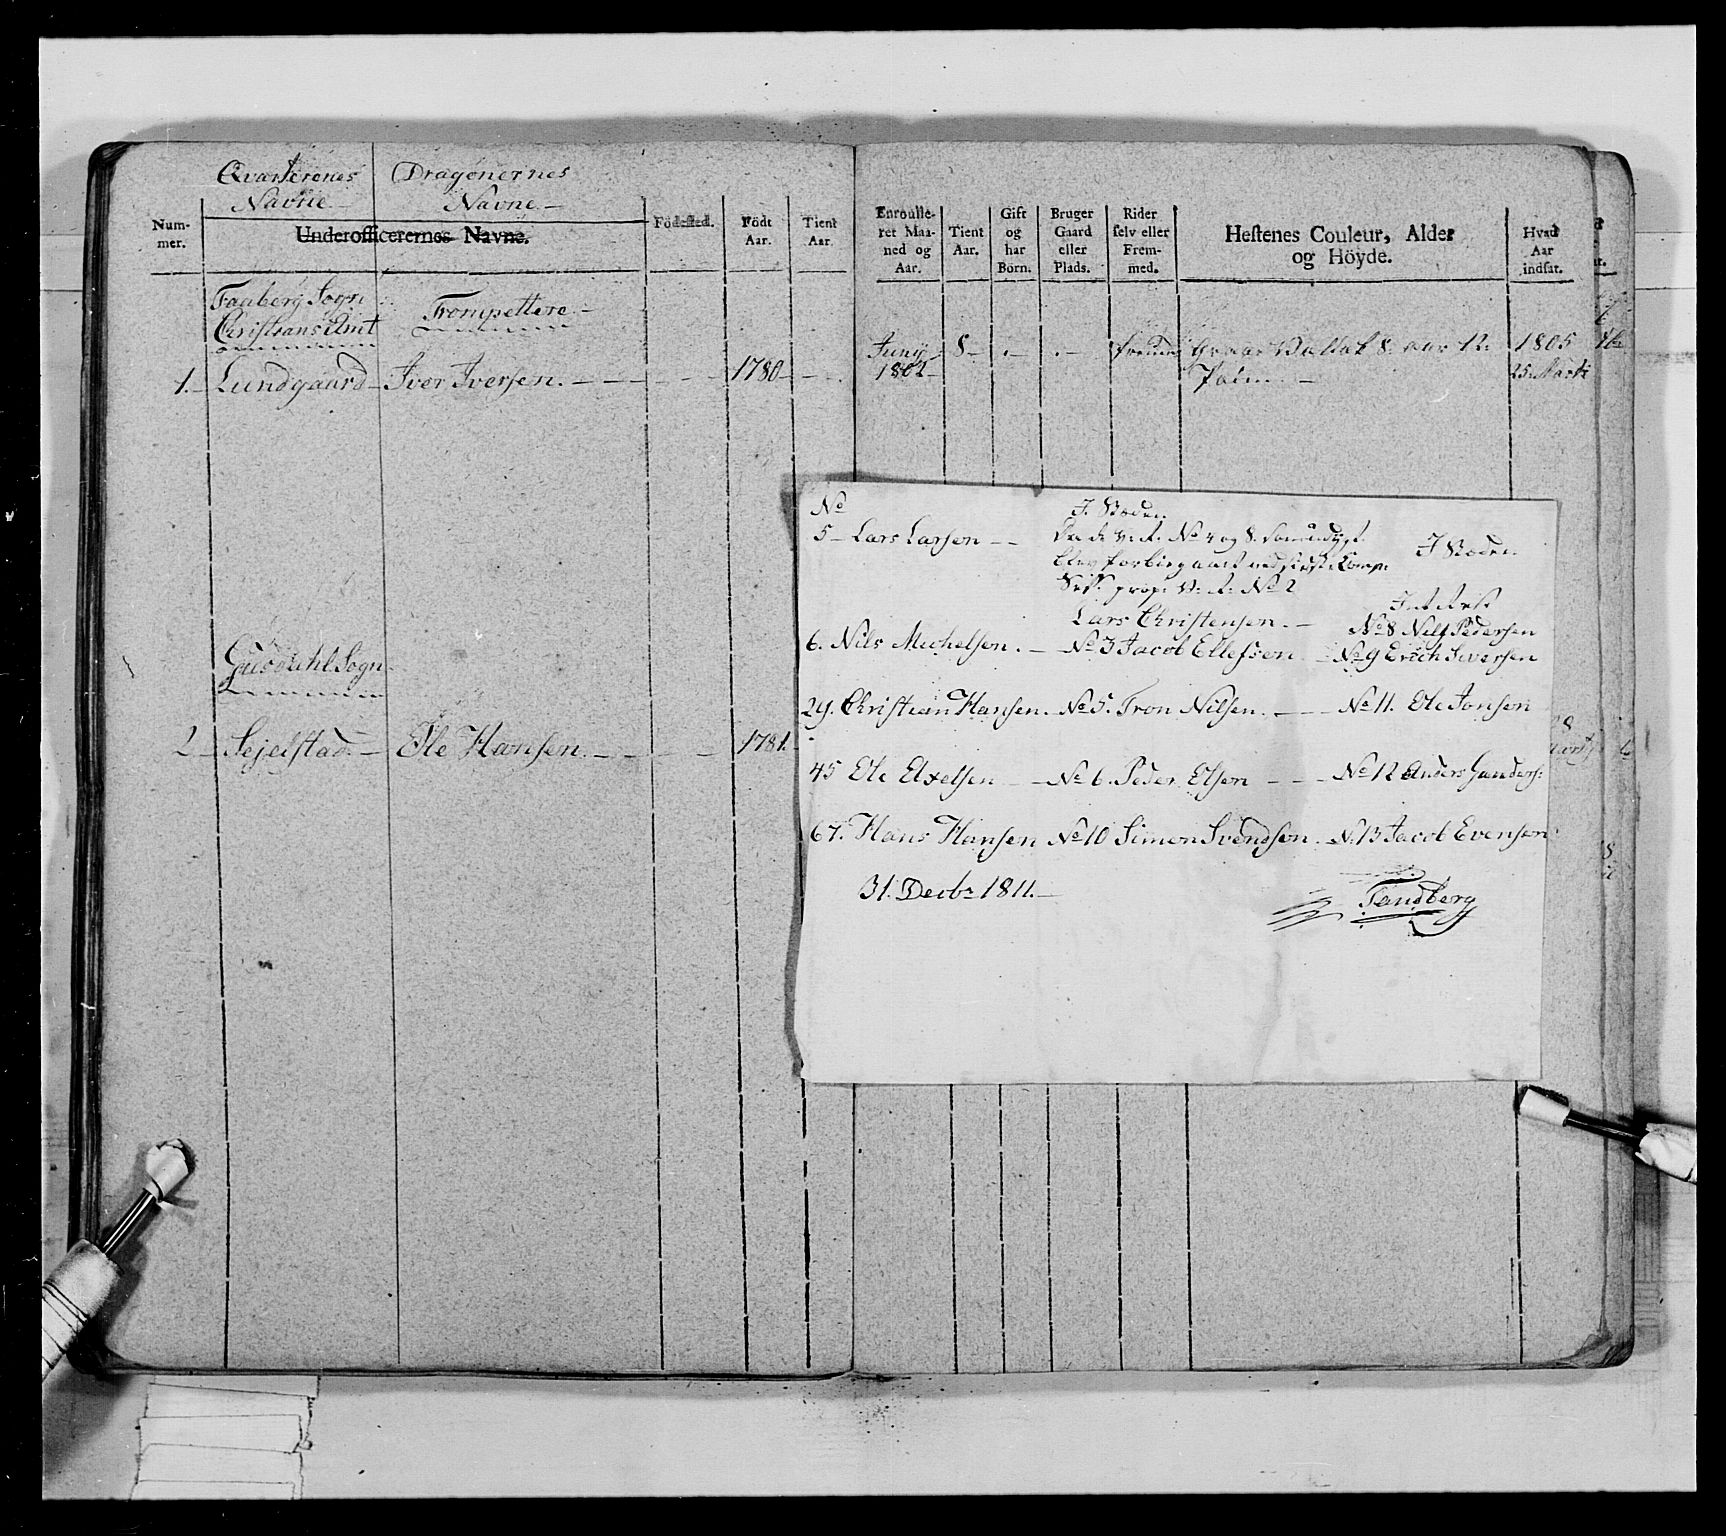 Qvarterenes Navne
Dragonernes Navne
Nummer.
Underofficerernes Navne.
Födested.
Födt Aar.
Tient Aar.
Enroulleret Maaned og Aar.
Tient Aar.
Gift og har Börn.
Bruger Gaard eller Plads.
Rider selv eller Fremmed.
Hestenes Couleur, Alder og Höyde.
Hvad Aar indsat.
Faaberg Sogn
Christians Amt
Trompettere
1. Lundgaard Iver Iversen. 1780
Juny 1802 8 1805
25 Marti
Gusdahl Sogn
2 Sejelstad Ole Hansen 1781.
No
5 Lars Larsen
I Stæden
No 4 og 8
I Stæden
No 2
Lars Christensen.
No 8 Nels Pedersen
6. Nils Michelsen. No 3 Jacob Ellefsen No 9 Erich Iversen
29. Christian Hansen. No 5. Tron Nilsen. No 11. Ole Jonsen
45 Ole Axelsen No 6. Peder Olsen No 12 Anders
67. Hans Hansen No 10 Simon Svendsen. No 13 Jacob Evensen
31. Decbr 1811.
Tandberg